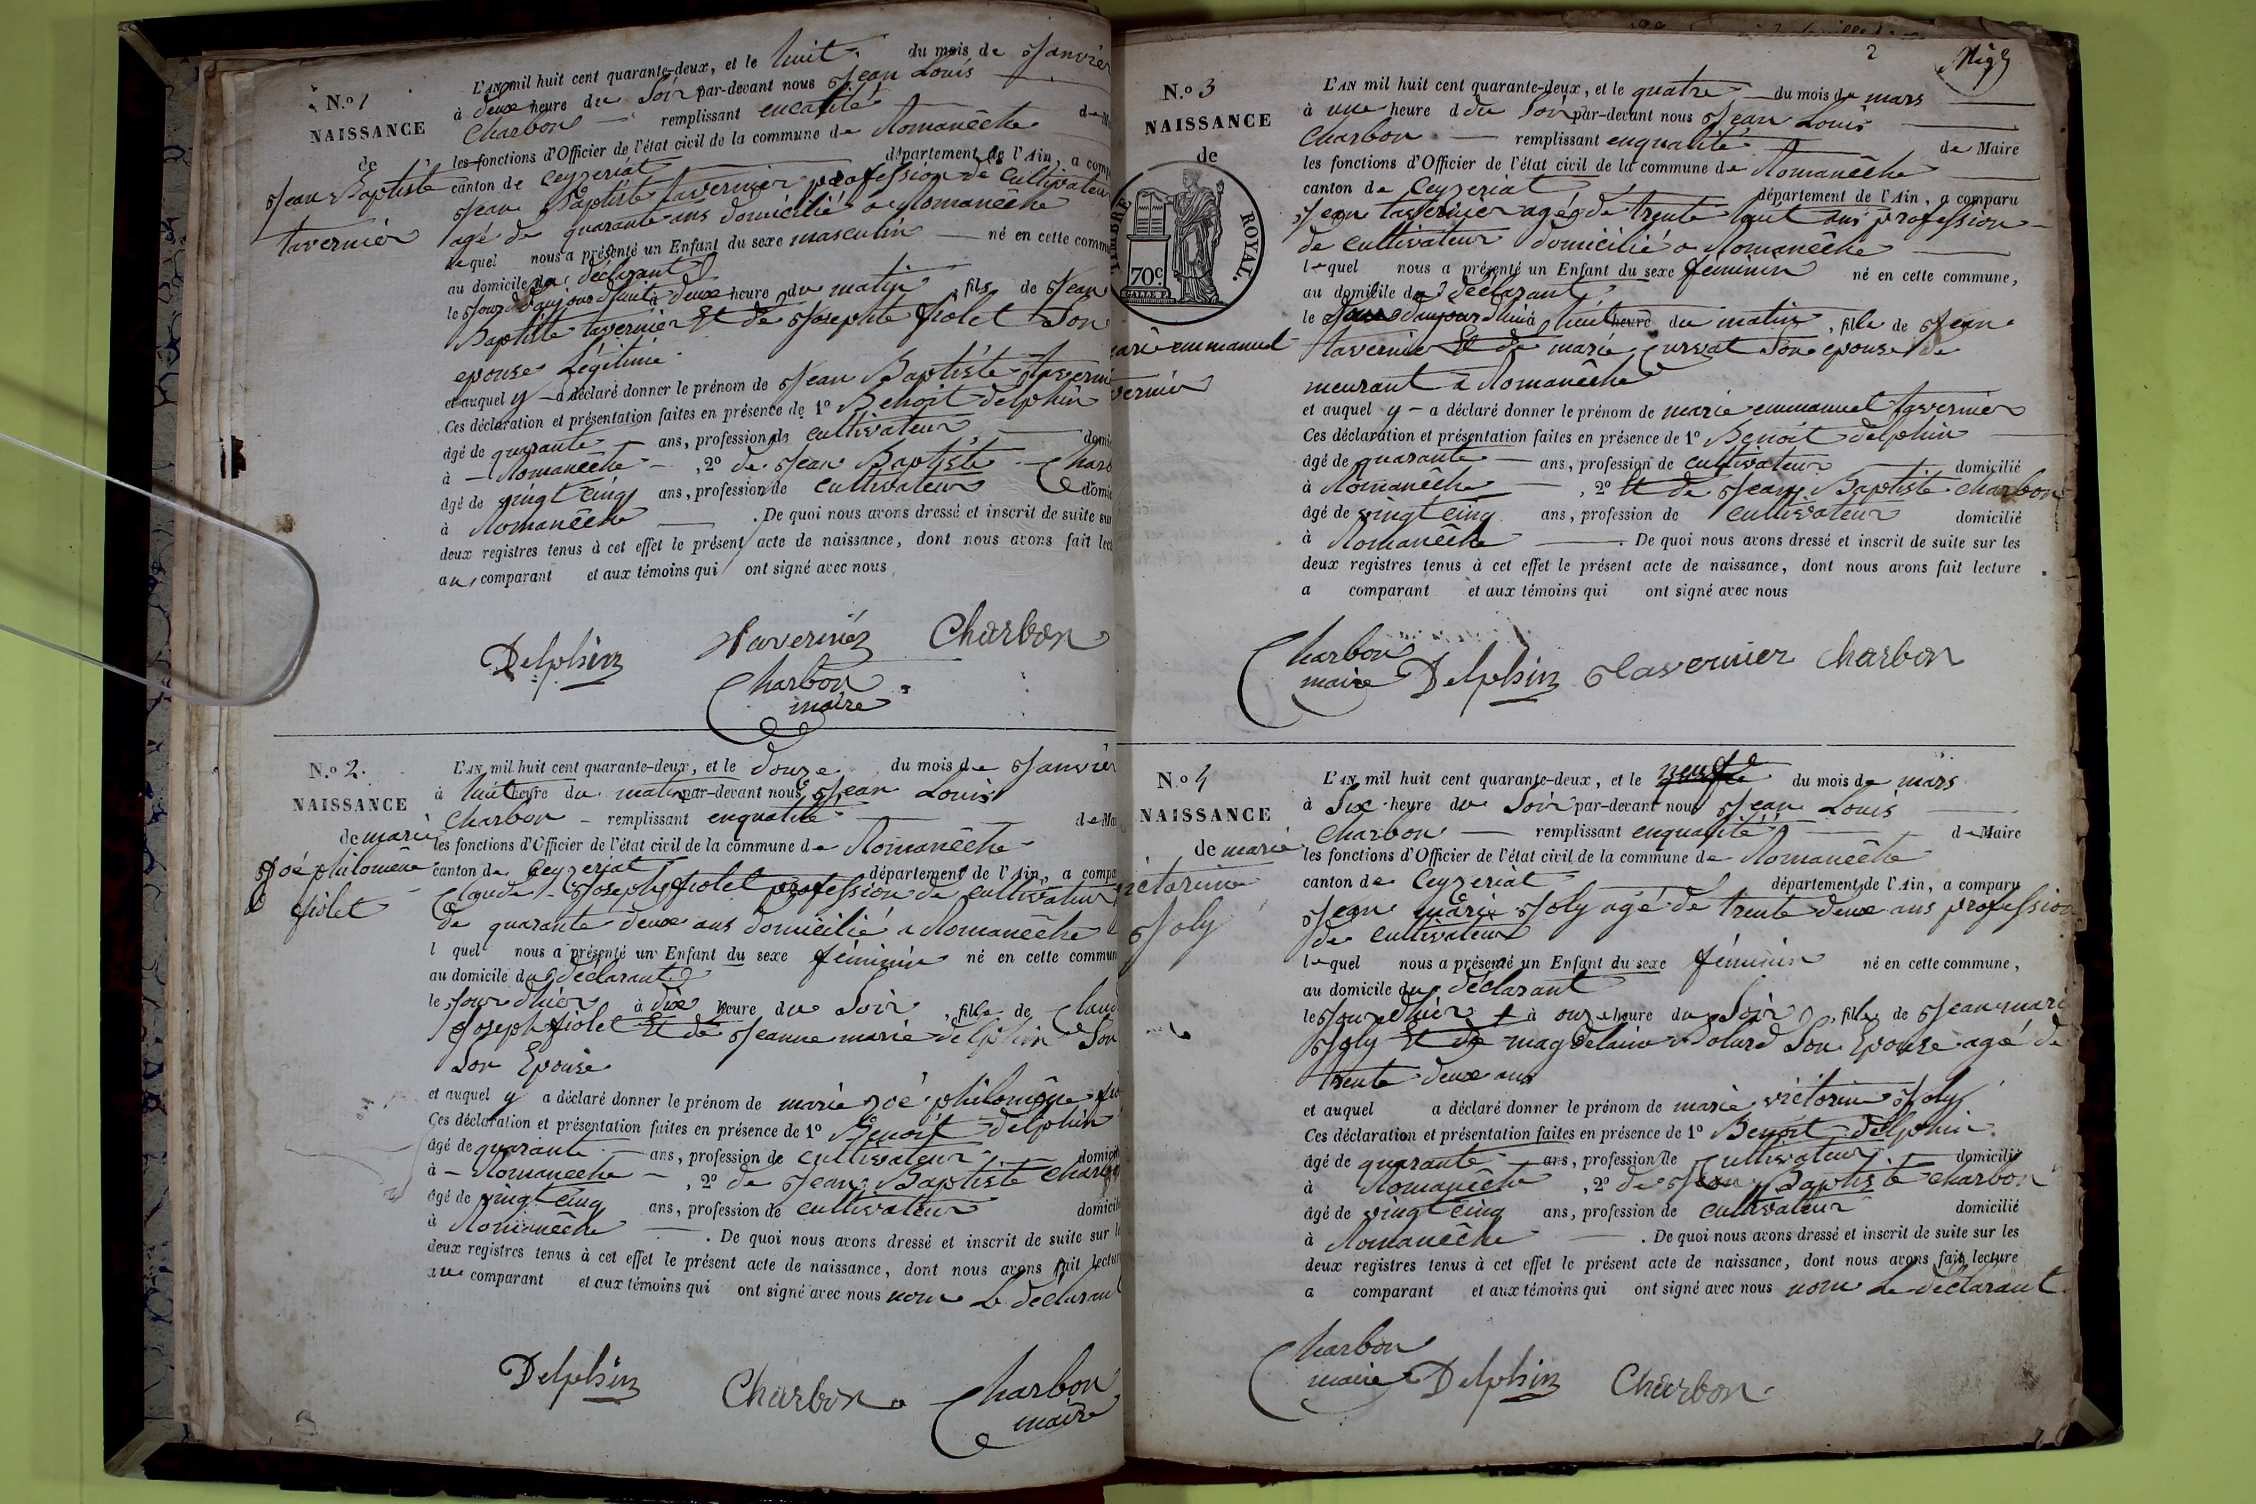 N.o 1
NAISSANCE
de
Jean Baptiste
tavernier
L'AN mil huit cent quarante-deux, et le huit du mois de Janvier
à deux heure du Soir par-devant nous Jean Louis
Charbon remplissant enqualité
les fonctions d'Officier de l'état civil de la commune de Romanêche
canton de Ceyzeriat département de l'Ain, a comp
Jean Baptiste tavernier profession de cultivateur
agé de quarante ans domicilié a Romanêche
lequel nous a présenté un Enfant du sexe masculin né en cette comm
au domicile du déclarant
le Jour daujourdhui à deux heure du matin, fils de Jean
Baptiste tavernier Et de Josephte fiolet Son
epouse Légitime
et auquel y a déclaré donner le prénom de Jean Baptiste taverni
Ces déclaration et présentation faites en présence de 1o Benoit delphin
âgé de quarante ans, profession de cultivateur domi
à Romanêche, 2o de Jean Baptiste Charb
âgé de vingt cinq ans, profession de cultivateur domic
à Romanêche. De quoi nous avons dressé et inscrit de suite sur
deux registres tenus à cet effet le présent acte de naissance, dont nous avons fait lect
au comparant et aux témoins qui ont signé avec nous
Delphin Tavernier Charbon
Charbon
maire
N.o 2.
NAISSANCE
de marie
Zoé philomêne
fiolet
L'AN mil huit cent quarante-deux, et le douze du mois de Janvier
à huit heure du matin par-devant nous Jean Louis
Charbon remplissant enqualité de Mai
les fonctions d'Officier de l'état civil de la commune de Romanêche
canton de Ceyzeriat département de l'Ain, a compa
Claude Joseph fiolet profession de cultivateur
de quarante deux ans domicilié a Romanêche
l quel nous a présenté un Enfant du sexe féminin né en cette commun
au domicile du déclarant
le Jour dhier à dix heure du Soir, fille de Claud
Joseph fiolet Et de Jeanne marie delphin Son
Son Epouse
et auquel y a déclaré donner le prénom de marie zoé philomêne fio
Ces déclaration et présentation faites en présence de 1o Benoit delphin
âgé de quarante ans, profession de cultivateur domicil
à Romaneche, 2o de Jean Baptiste Charbo
âgé de vingt cinq ans, profession de cultivateur domicili
à Romanêche. De quoi nous avons dressé et inscrit de suite sur l
deux registres tenus à cet effet le présent acte de naissance, dont nous avons fait lectur
au comparant et aux témoins qui ont signé avec nous non Le déclarant
Delphin Charbon Charbon
maire
2
N.o 3
NAISSANCE
de
TIMBRE ROYAL.
70c.
arie emmanuel
vernier
L'AN mil huit cent quarante-deux, et le quatre du mois de mars
à une heure d du Soir par-devant nous Jean Louis
Charbon remplissant enqualité de Maire
les fonctions d'Officier de l'état civil de la commune de Romanêche
canton de Ceyzeriat département de l'Ain, a comparu
Jean tavernier agé de trente huit ans profession
de cultivateur domicilié a Romanêche
lequel nous a présenté un Enfant du sexe féminin né en cette commune,
au domicile du déclarant
le Jour daujourdhui à huit heure du matin, fille de Jean
tavernier Et de marie Curvat Son epouse de
meurant a Romanêche
et auquel y a déclaré donner le prénom de marie emmanuel tavernier
Ces déclaration et présentation faites en présence de 1o Benoit delphin
âgé de quarante ans, profession de cultivateur domicilié
à Romanêche, 2o Et de Jean Baptiste Charbon
âgé de vingt cinq ans, profession de cultivateur domicilié
à Romanêche. De quoi nous avons dressé et inscrit de suite sur les
deux registres tenus à cet effet le présent acte de naissance, dont nous avons fait lecture
a comparant et aux témoins qui ont signé avec nous
Charbon
maire Delphin Tavernier Charbon
N.o 4
NAISSANCE
de marie
victorine
Joly
L'AN mil huit cent quarante-deux, et le neuf du mois de mars
à Six heure du Soir par-devant nous Jean Louis
Charbon remplissant enqualité de Maire
les fonctions d'Officier de l'état civil de la commune de Romanêche
canton de Ceyzeriat département de l'Ain, a comparu
Jean marie Joly agé de trente deux ans profession
de cultivateur
lequel nous a présenté un Enfant du sexe féminin né en cette commune,
au domicile du déclarant
le Jour dhier à onze heure du Soir, fille de Jean marie
Joly Et de magdelaine Bolard Son Epouse agé de
trente deux ans
et auquel a déclaré donner le prénom de marie victorine Joly
Ces déclaration et présentation faites en présence de 1o Benoit delphin
âgé de quarante ans, profession de Cultivateur domicilié
à Romanêche, 2o de Jean Baptiste Charbon
âgé de vingt cinq ans, profession de cultivateur domicilié
à Romanêche. De quoi nous avons dressé et inscrit de suite sur les
deux registres tenus à cet effet le présent acte de naissance, dont nous avons fait lecture
a comparant et aux témoins qui ont signé avec nous non Le déclarant
Charbon
maire Delphin Charbon